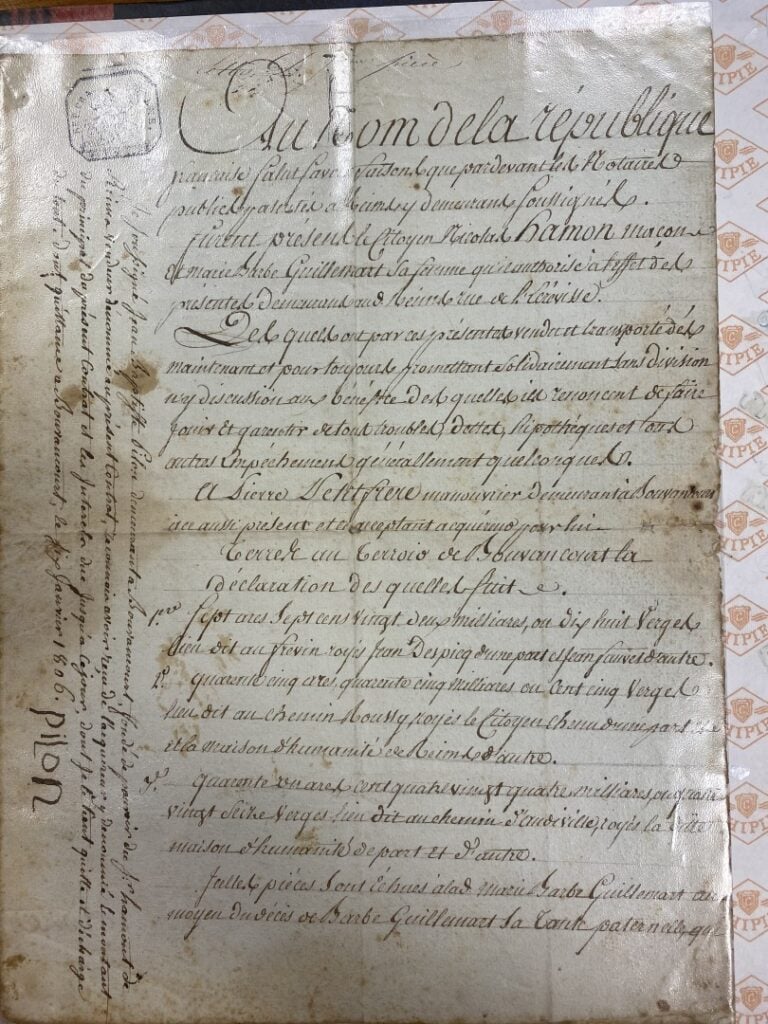 Au Nom de la république
française Salut savoir faisons que pardevant les Notaires
publics patentés à Reims y demeurans soussignés.
furent présens le Citoyen Nicolas hamon macon
Et marie Barbe Guillemart sa femme qu'il authorise à l'effet des
présentes demeurans aud. Reims rue de l'Ecrévisse.
Lesquels ont par ces présentes vendu et transporté dès
maintenant et pour toujours promettant solidairement sans division
n'y discussion aux bénéfices desquelles ils renoncent de faire
jouir et garentir de tous troubles, dettes, hipothèques et tous
autres Empechemens générallement quelconques.
A Pierre Petitfrere manouvrier demeurant à Bouvancourt
à ce aussi présent et acceptant acquéreur pour lui
Terres au Terroir de Bouvancourt la
déclaration des quelles suit.
1.ere Sept ares sept cens vingt deux milliares, ou dix huit Verges
lieu dit au frévin royés Jean Despicq d'une part et Jean Sauvet d'autre.
2.e quarente cinq ares, quarente cinq milliares ou Cent cinq Verges
lieu dit au chemin Roussy, royés le Citoyen chenu d'une part
et la maison d'humanité de Reims d'autre.
3.e quarante un ares cent quatre vingt quatre milliares, ou quatre
vingt seize Verges lieu dit au chemin royés la ditte
maison d'humanité de part et d'autre.
Telles pièces sont échues à lad. Marie Barbe Guillemart au
moyen du décès de Barbe Guillemart sa Tante paternelle, qui
Je soussigné Jean Baptiste Pilon demeurant a Bouvancourt fondé de pouvoir du Sr. hamont de
Reims vendeur denommé au présent Contrat, reconnois avoir reçu de l'acquereur y denommé le montant
du principal du présent Contrat et les Interets dus jusqu'à ce jour dont je le tient quitte et décharge
de tout. dont quittance a Bouvancourt, le six Janvier 1806. Pilon